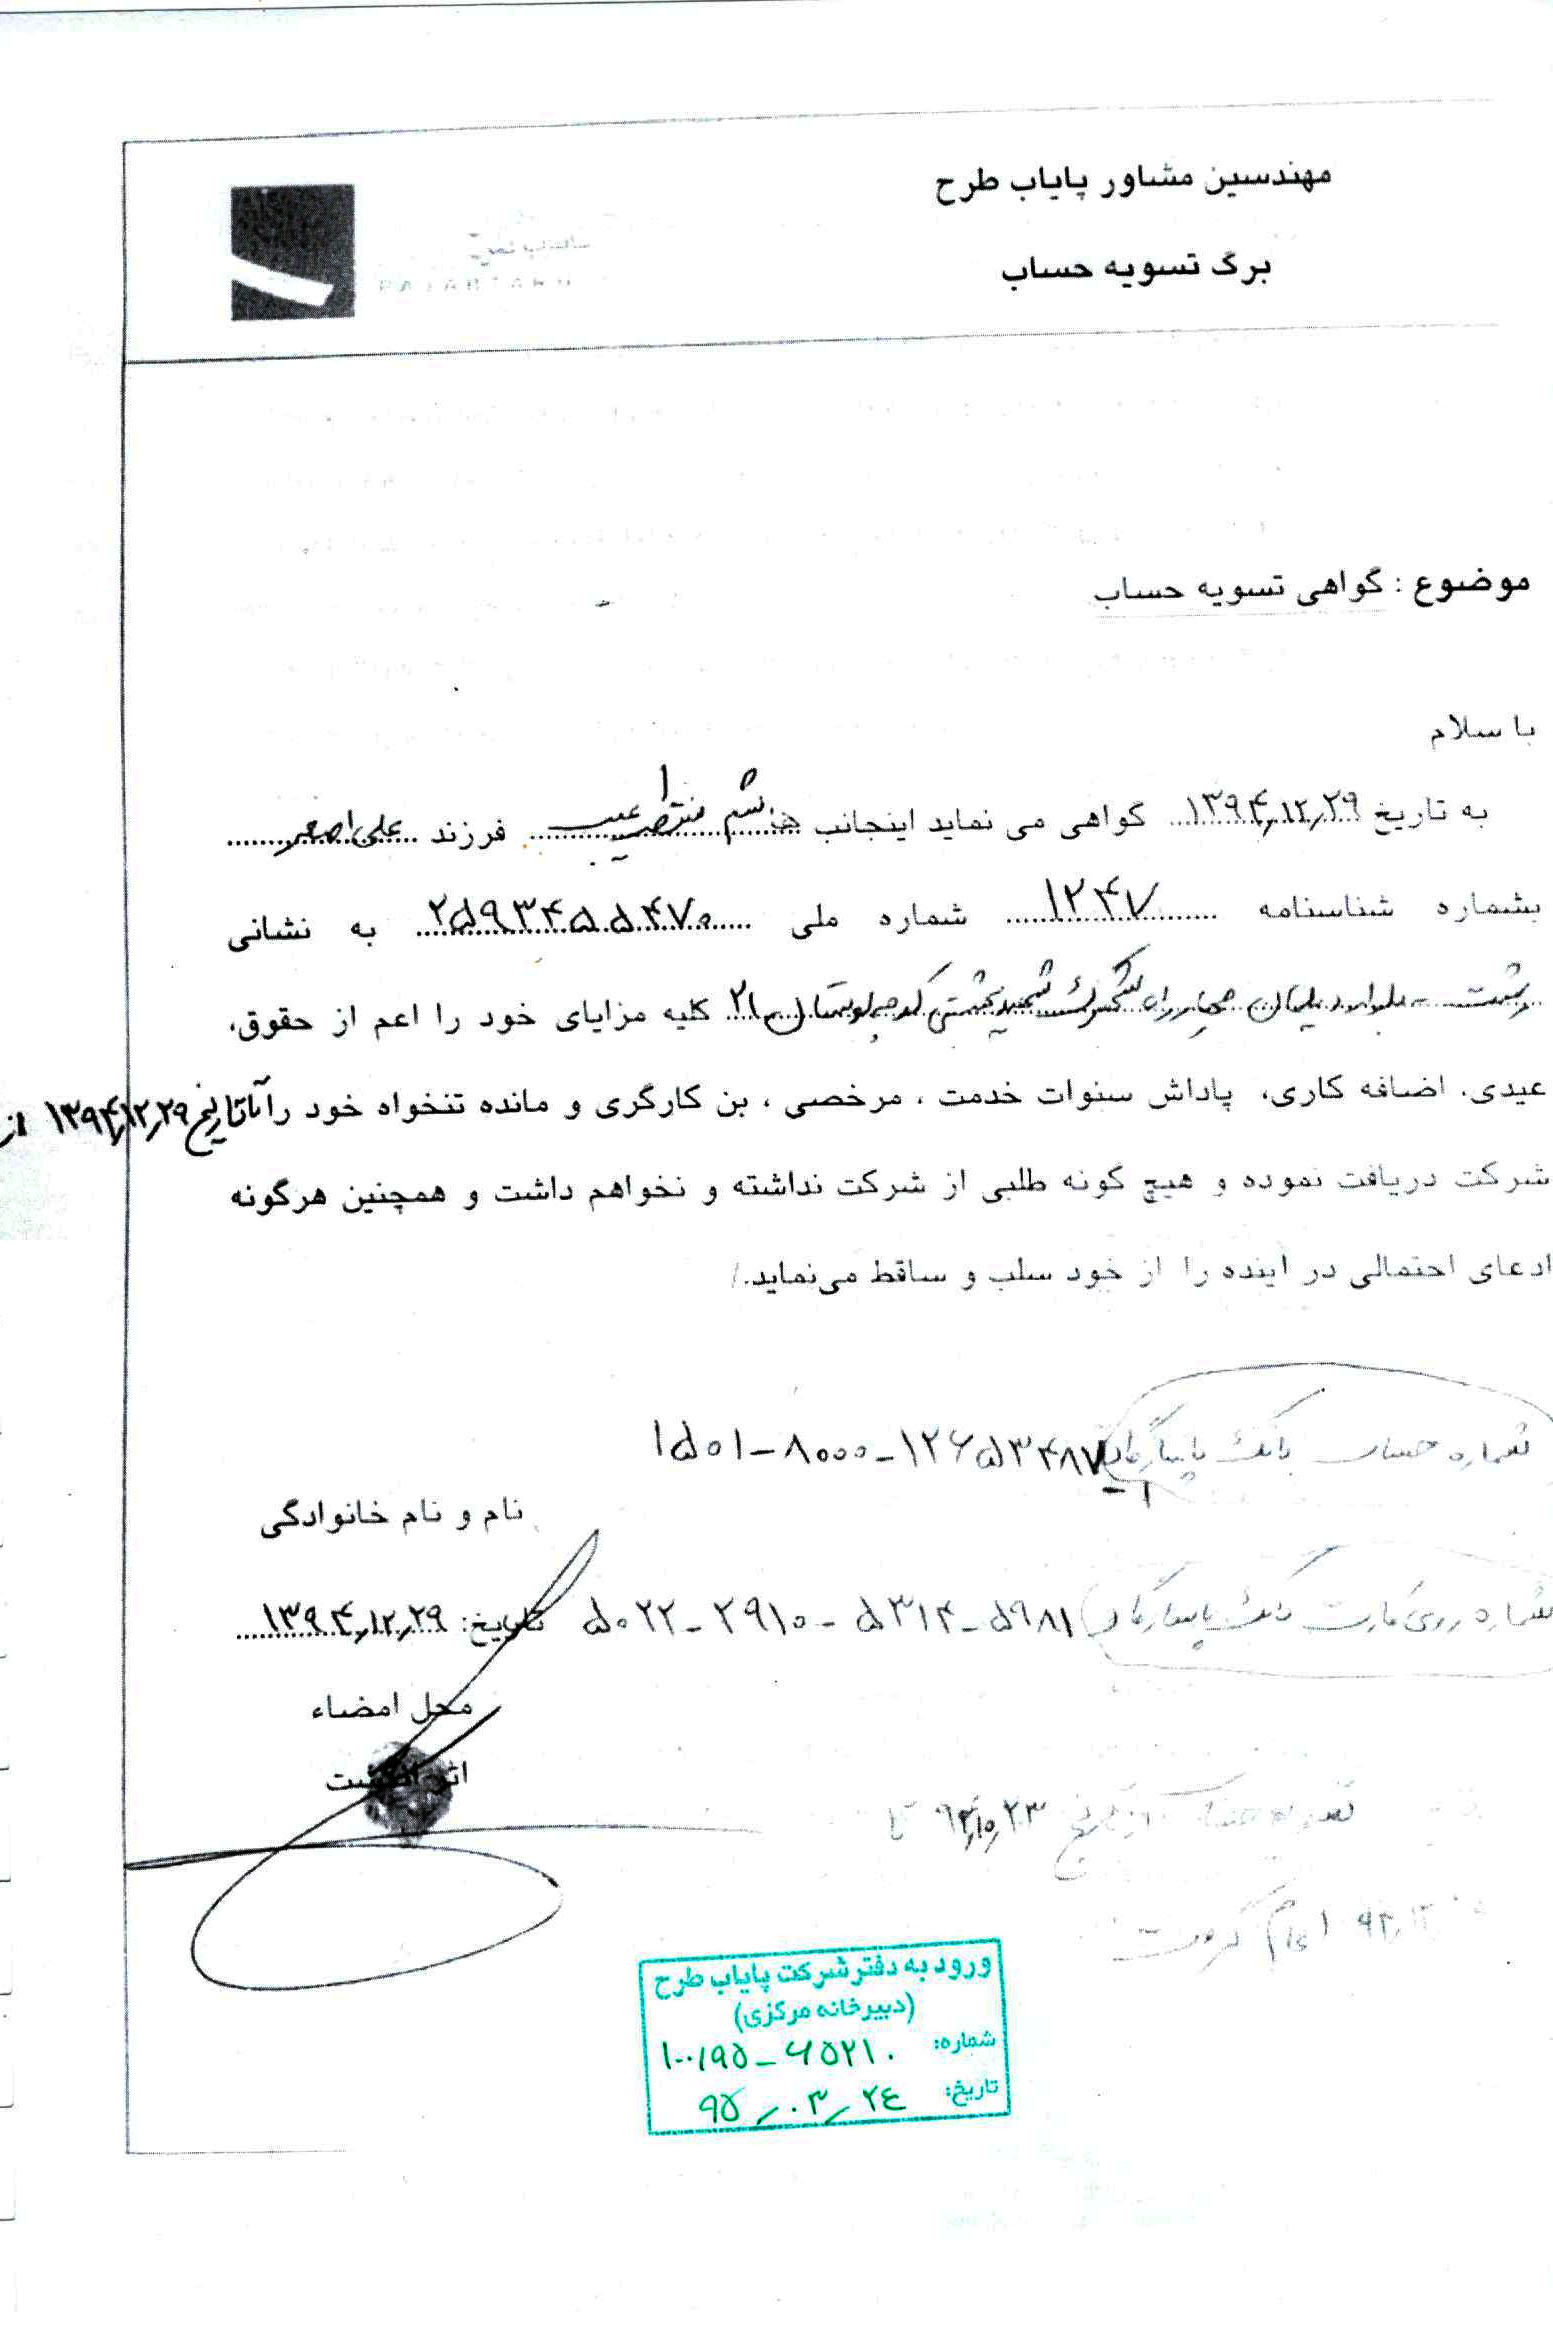 مهندسین مشاور پایاب طرح
برگ تسویه حساب
موضوع : گواهی تسویه حساب
با سلام
به تاریخ ۱۳۹۴٫۱۲٫۲۹ گواهی می نماید اینجانب هاشم فرزند علی اصغر
بشماره شناسنامه ۱۲۴۷ شماره ملی ۲۵۹۳۴۵۵۴۷۰ به نشانی
رشت - بلوار دیلمان چهارراه شهرک شهید بهشتی کوچه بوستان ۲۱ کلیه مزایای خود را اعم از حقوق،
عیدی، اضافه کاری، پاداش سنوات خدمت ، مرخصی ، بن کارگری و مانده تنخواه خود را تا تاریخ ۱۳۹۴٫۱۲٫۲۹ از
شرکت دریافت نموده و هیچ گونه طلبی از شرکت نداشته و نخواهم داشت و همچنین هرگونه
ادعای احتمالی در آینده را از خود سلب و ساقط می‌نماید./
شماره حساب بانک پاسارگاد ۱۵۰۱-۸۰۰۰-۱۲۶۵۳۴۸۷-۱
نام و نام خانوادگی
شماره روی کارت بانک پاسارگاد ۵۰۲۲-۲۹۱۰-۵۳۱۴-۵۹۸۱
تاریخ: ۱۳۹۴٫۱۲٫۲۹
محل امضاء
اثر انگشت
تسویه حساب از تاریخ ۹۴٫۱۰٫۲۳ تا
انجام گرفت
ورود به دفتر شرکت پایاب طرح
(دبیرخانه مرکزی)
شماره: ۱۰۰/۹۵-۶۵۲۱۰
تاریخ: ۹۵/۰۳/۲۴